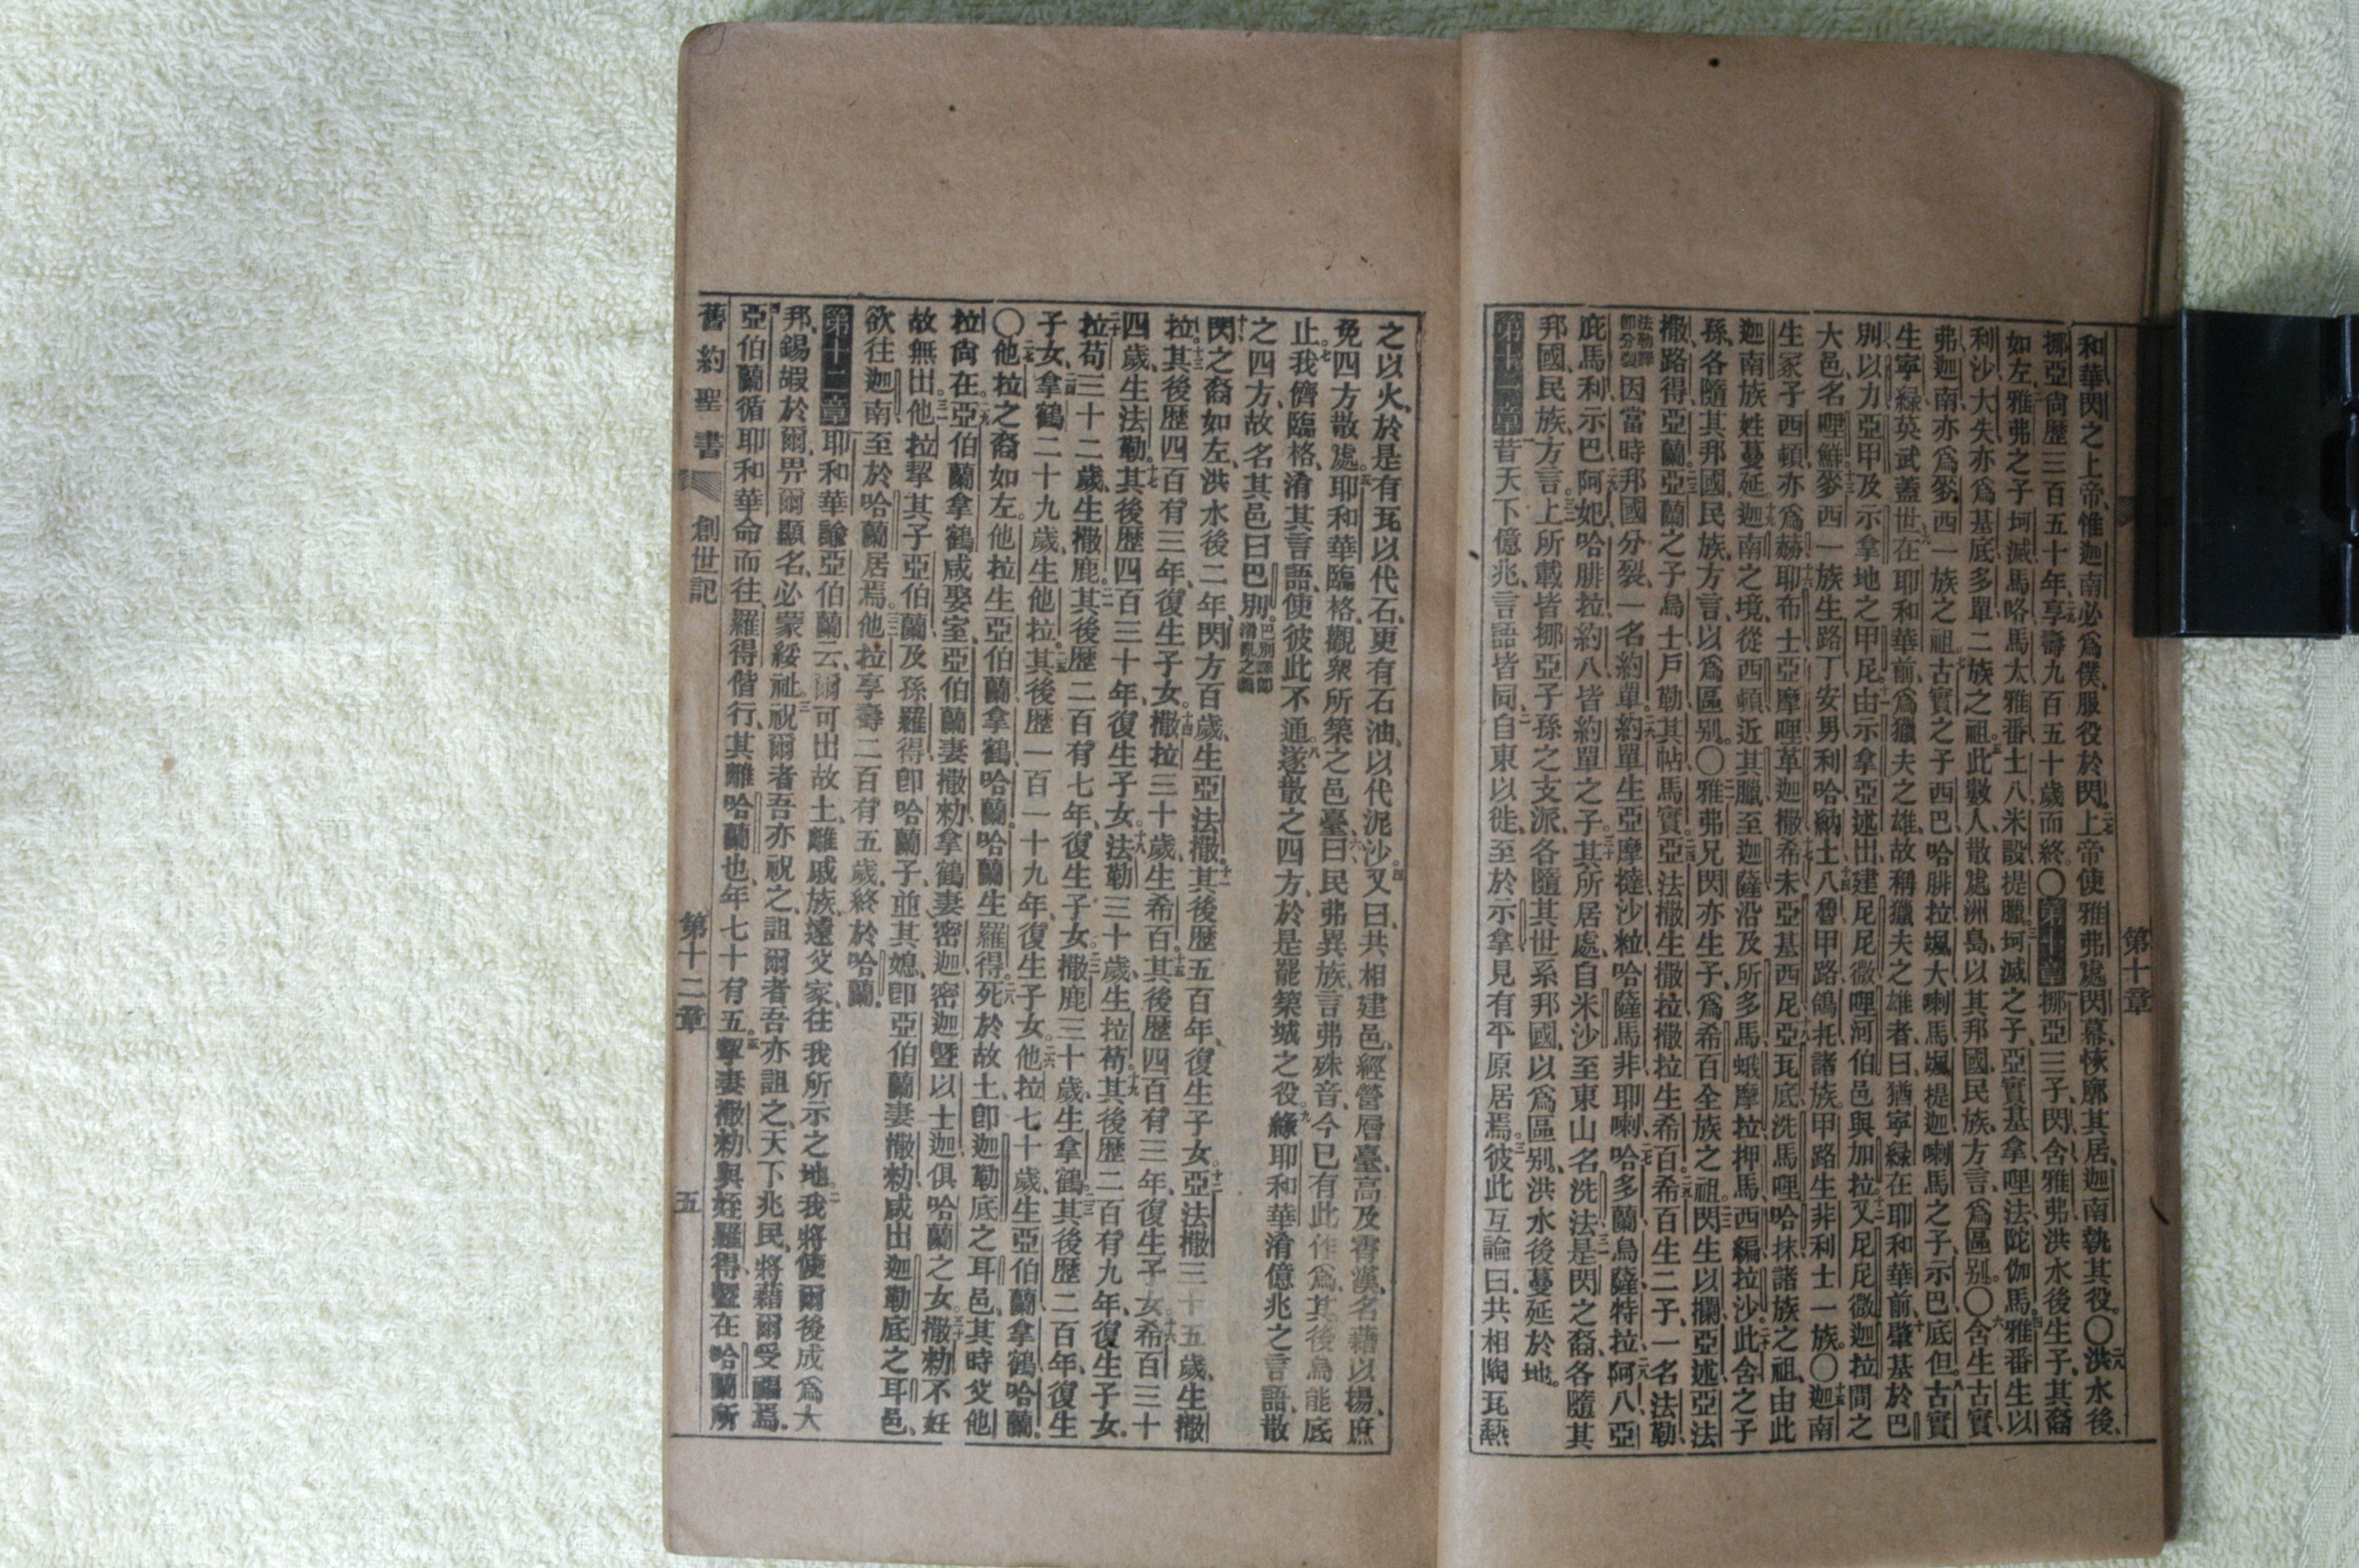 第十章
和華閃之上帝、惟迦南必爲僕、服役於閃。二七上帝使雅弗處閃幕、恢廓其居、迦南執其役。〇二八洪水後、
挪亞尙歷三百五十年、二九享壽九百五十歲而終。〇第十章挪亞三子、閃含雅弗、洪水後生子、其裔
如左、二雅弗之子、坷滅馬咯馬太雅番土八米設提臘、三坷滅之子、亞實基拿哩法陀伽馬。四雅番生以
利沙大失亦爲基底多單二族之祖。五此數人散處洲島、以其邦國民族方言、爲區别。〇六含生古實
弗迦南亦爲麥西一族之祖。七古實之子、西巴哈腓拉颯大喇馬颯提迦、喇馬之子、示巴底但。八古實
生寧綠、英武蓋世、九在耶和華前、爲獵夫之雄、故稱獵夫之雄者、曰猶寧綠在耶和華前、十肇基於巴
别以力亞甲及示拿地之甲尼、十一由示拿亞述出、建尼尼微哩河伯邑與加拉、十二又尼尼微迦拉間之
大邑、名哩鮮。十三麥西一族生路丁安男利哈納土八十四魯甲路鴿托諸族。甲路生非利士一族。〇十五迦南
生冢子西頓、亦爲赫十六耶布士亞摩哩革迦撒十七希未亞基西尼十八亞瓦底洗馬哩哈抹諸族之祖、由此
迦南族姓蔓延、十九迦南之境、從西頓近其臘至迦薩、沿及所多馬蛾摩拉押馬西編拉沙、二十此含之子
孫、各隨其邦國、民族、方言、以爲區别。〇二一雅弗兄閃、亦生子、爲希百全族之祖。二二閃生以攔亞述亞法
撒路得亞蘭。二三亞蘭之子、烏士戶勒其帖馬實、二四亞法撒生撒拉、撒拉生希百。二五希百生二子、一名法勒、
法勒譯卽分裂因當時邦國分裂、一名約單。二六約單生亞摩撻沙粒哈薩馬非耶喇二七哈多蘭烏薩特拉二八阿八亞
庇馬利示巴二九阿妃哈腓拉約八、皆約單之子。三十其所居處、自米沙至東山名洗法、三一是閃之裔、各隨其
邦國、民族、方言。三二上所載皆挪亞子孫之支派、各隨其世系邦國、以爲區别、洪水後蔓延於地。
第十一章昔天下億兆、言語皆同、二自東以徙、至於示拿、見有平原居焉。三彼此互論曰、共相陶瓦、爇
之以火、於是有瓦以代石、更有石油、以代泥沙。四又曰、共相建邑、經營層臺、高及霄漢、名藉以揚、庶
免四方散處。五耶和華臨格、觀衆所築之邑臺、六曰、民弗異族、言弗殊音、今已有此作爲、其後烏能底
止。七我儕臨格、淆其言語、使彼此不通。八遂散之四方、於是罷築城之役。九緣耶和華淆億兆之言語、散
之四方、故名其邑曰巴别。巴別譯卽淆亂之義
十閃之裔如左、洪水後二年、閃方百歲、生亞法撒。十一其後歷五百年、復生子女。十二亞法撒三十五歲、生撒
拉、十三其後歷四百有三年、復生子女。十四撒拉三十歲、生希百。十五其後歷四百有三年、復生子女。十六希百三十
四歲、生法勒。十七其後歷四百三十年、復生子女。十八法勒三十歲、生拉苟。十九其後歷二百有九年、復生子女。
二十拉苟三十二歲、生撒鹿。二一其後歷二百有七年、復生子女。二二撒鹿三十歲、生拿鶴。二三其後歷二百年、復生
子女。二四拿鶴二十九歲、生他拉。二五其後歷一百一十九年、復生子女。二六他拉七十歲、生亞伯蘭拿鶴哈蘭。
〇二七他拉之裔如左、他拉生亞伯蘭拿鶴哈蘭。哈蘭生羅得。二八死於故土、卽迦勒底之耳邑、其時父他
拉尙在。二九亞伯蘭拿鶴咸娶室、亞伯蘭妻撒勑、拿鶴妻密迦、密迦曁以士迦、俱哈蘭之女。三十撒勑不妊
故無出。三一他拉挈其子亞伯蘭、及孫羅得、卽哈蘭子、並其媳、卽亞伯蘭妻撒勑、咸出迦勒底之耳邑、
欲往迦南、至於哈蘭居焉。三二他拉享壽二百有五歲、終於哈蘭。
第十二章耶和華諭亞伯蘭云、爾可出故土、離戚族、遠父家、往我所示之地。二我將使爾後成爲大
邦、錫嘏於爾、畀爾顯名、必蒙綏祉。三祝爾者吾亦祝之、詛爾者吾亦詛之、天下兆民、將藉爾受福焉。
四亞伯蘭循耶和華命而往、羅得偕行、其離哈蘭也、年七十有五。五挈妻撒勑與姪羅得、曁在哈蘭所
舊約聖書 創世記 第十二章 五